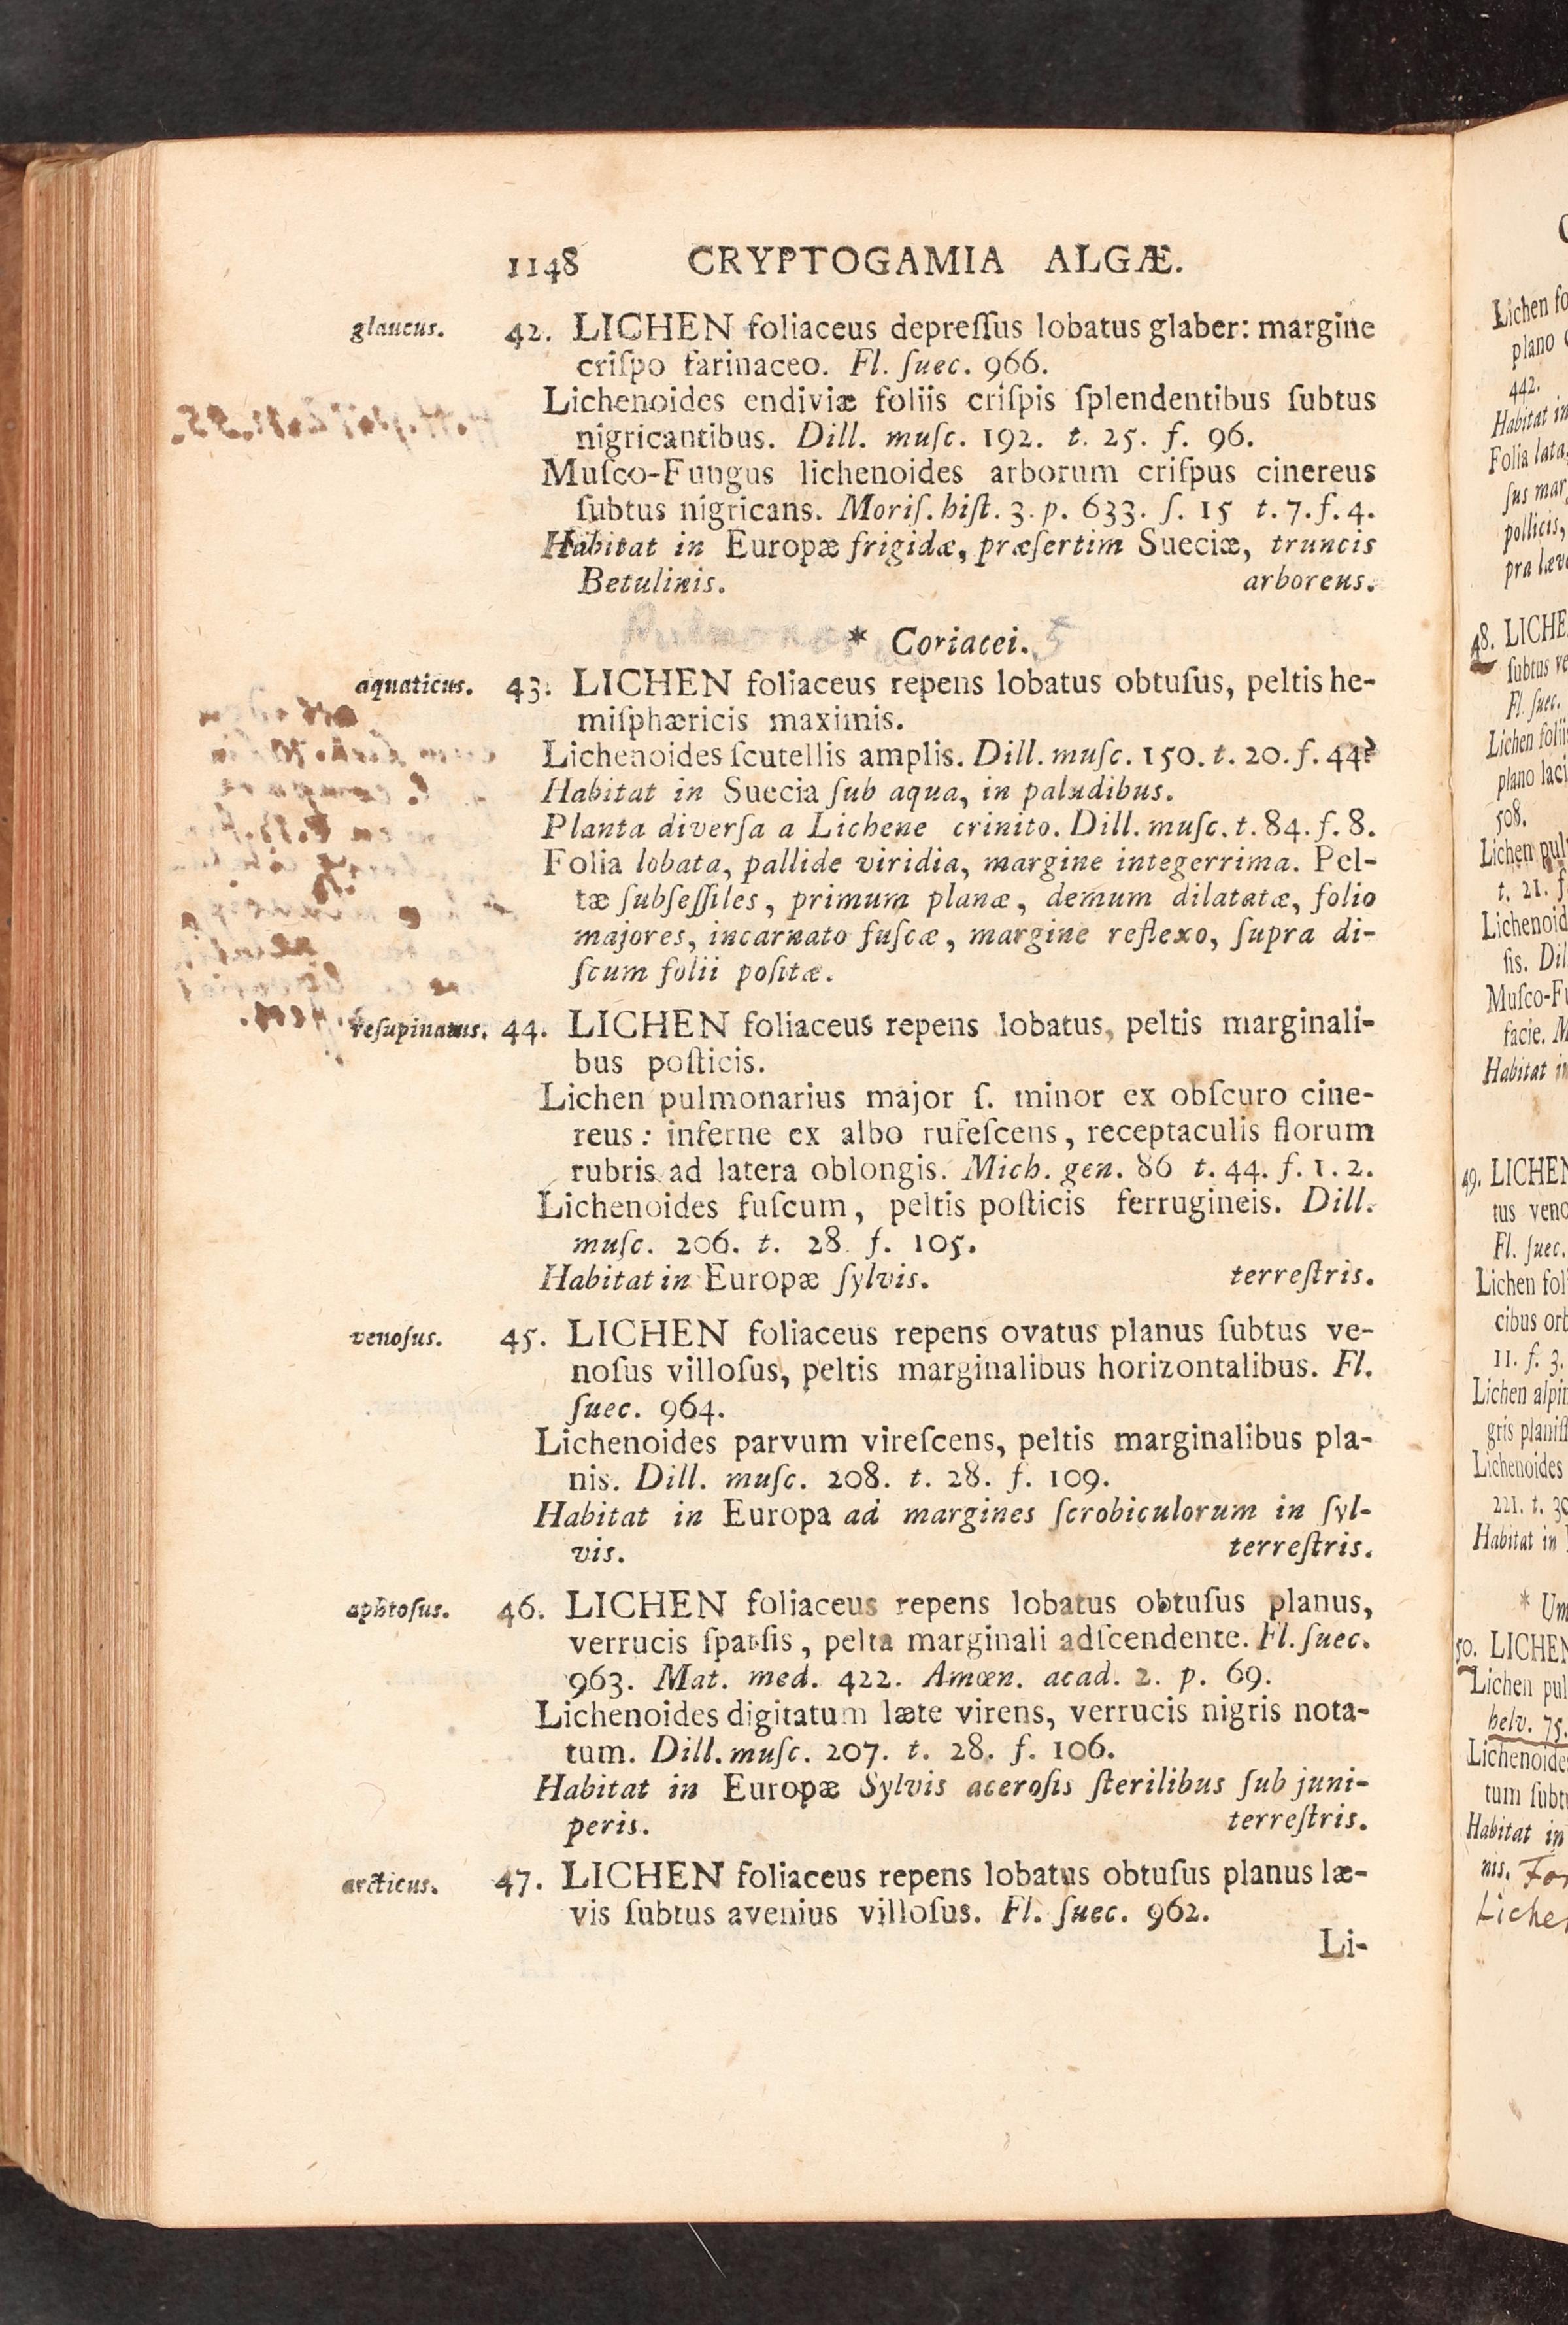 1148 CRYPTOGAMIA ALGÆ.
glaucus. 42. LICHEN foliaceus depreſſus lobatus glaber: margine
criſpo farinaceo. Fl. ſuec. 966.
Lichenoides endiviæ foliis criſpis ſplendentibus ſubtus
nigricantibus. Dill. muſc. 192. t. 25. f. 96.
Muſco-Fungus lichenoides arborum criſpus cinereus
ſubtus nigricans. Moriſ. hiſt. 3. p. 633. ſ. 15 t. 7. f. 4.
Habitat in Europæ frigidæ, præſertim Sueciæ, truncis
Betulinis. arboreus.
* Coriacei. 5
aquaticus. 43. LICHEN foliaceus repens lobatus obtuſus, peltis he-
miſphæricis maximis.
Lichenoides ſcutellis amplis. Dill. muſc. 150. t. 20. f. 44?
Habitat in Suecia ſub aqua, in paludibus.
Planta diverſa a Lichene crinito. Dill. muſc. t. 84. f. 8.
Folia lobata, pallide viridia, margine integerrima. Pel-
tæ ſubſeſſiles, primum planæ, demum dilatatæ, folio
majores, incarnato fuſcæ, margine reflexo, ſupra di-
ſcum folii poſitæ.
reſupinatus. 44. LICHEN foliaceus repens lobatus, peltis marginali-
bus poſticis.
Lichen pulmonarius major ſ. minor ex obſcuro cine-
reus: inferne ex albo rufeſcens, receptaculis florum
rubris ad latera oblongis. Mich. gen. 86 t. 44. f. 1. 2.
Lichenoides fuſcum, peltis poſticis ferrugineis. Dill.
muſc. 206. t. 28. f. 105.
Habitat in Europæ ſylvis. terreſtris.
venoſus. 45. LICHEN foliaceus repens ovatus planus ſubtus ve-
noſus villoſus, peltis marginalibus horizontalibus. Fl.
ſuec. 964.
Lichenoides parvum vireſcens, peltis marginalibus pla-
nis. Dill. muſc. 208. t. 28. f. 109.
Habitat in Europa ad margines ſcrobiculorum in ſyl-
vis. terreſtris.
aphtoſus. 46. LICHEN foliaceus repens lobatus obtuſus planus,
verrucis ſparſis, pelta marginali adſcendente. Fl. ſuec.
963. Mat. med. 422. Amœn. acad. 2. p. 69.
Lichenoides digitatum læte virens, verrucis nigris nota-
tum. Dill. muſc. 207. t. 28. f. 106.
Habitat in Europæ Sylvis aceroſis ſterilibus ſub juni-
peris. terreſtris.
arcticus. 47. LICHEN foliaceus repens lobatus obtuſus planus læ-
vis ſubtus avenius villoſus. Fl. ſuec. 962.
Li-
Lichen
plano
442.
Habitat in
Folia lata,
ſus
pollicis,
pra
48. LICHE
ſubtus
Fl. ſuec.
Lichen
plano
508.
Lichen
t. 21.
Lichenoid
ſis.
Muſco-
facie.
Habitat
49. LICHEN
tus
Fl. ſuec.
Lichen
cibus
11. f. 3.
Lichen
gris
Lichenoides
221. t.
Habitat in
*
50. LICHEN
Lichen
helv. 75.
Lichenoide
tum
Habitat in
nis.